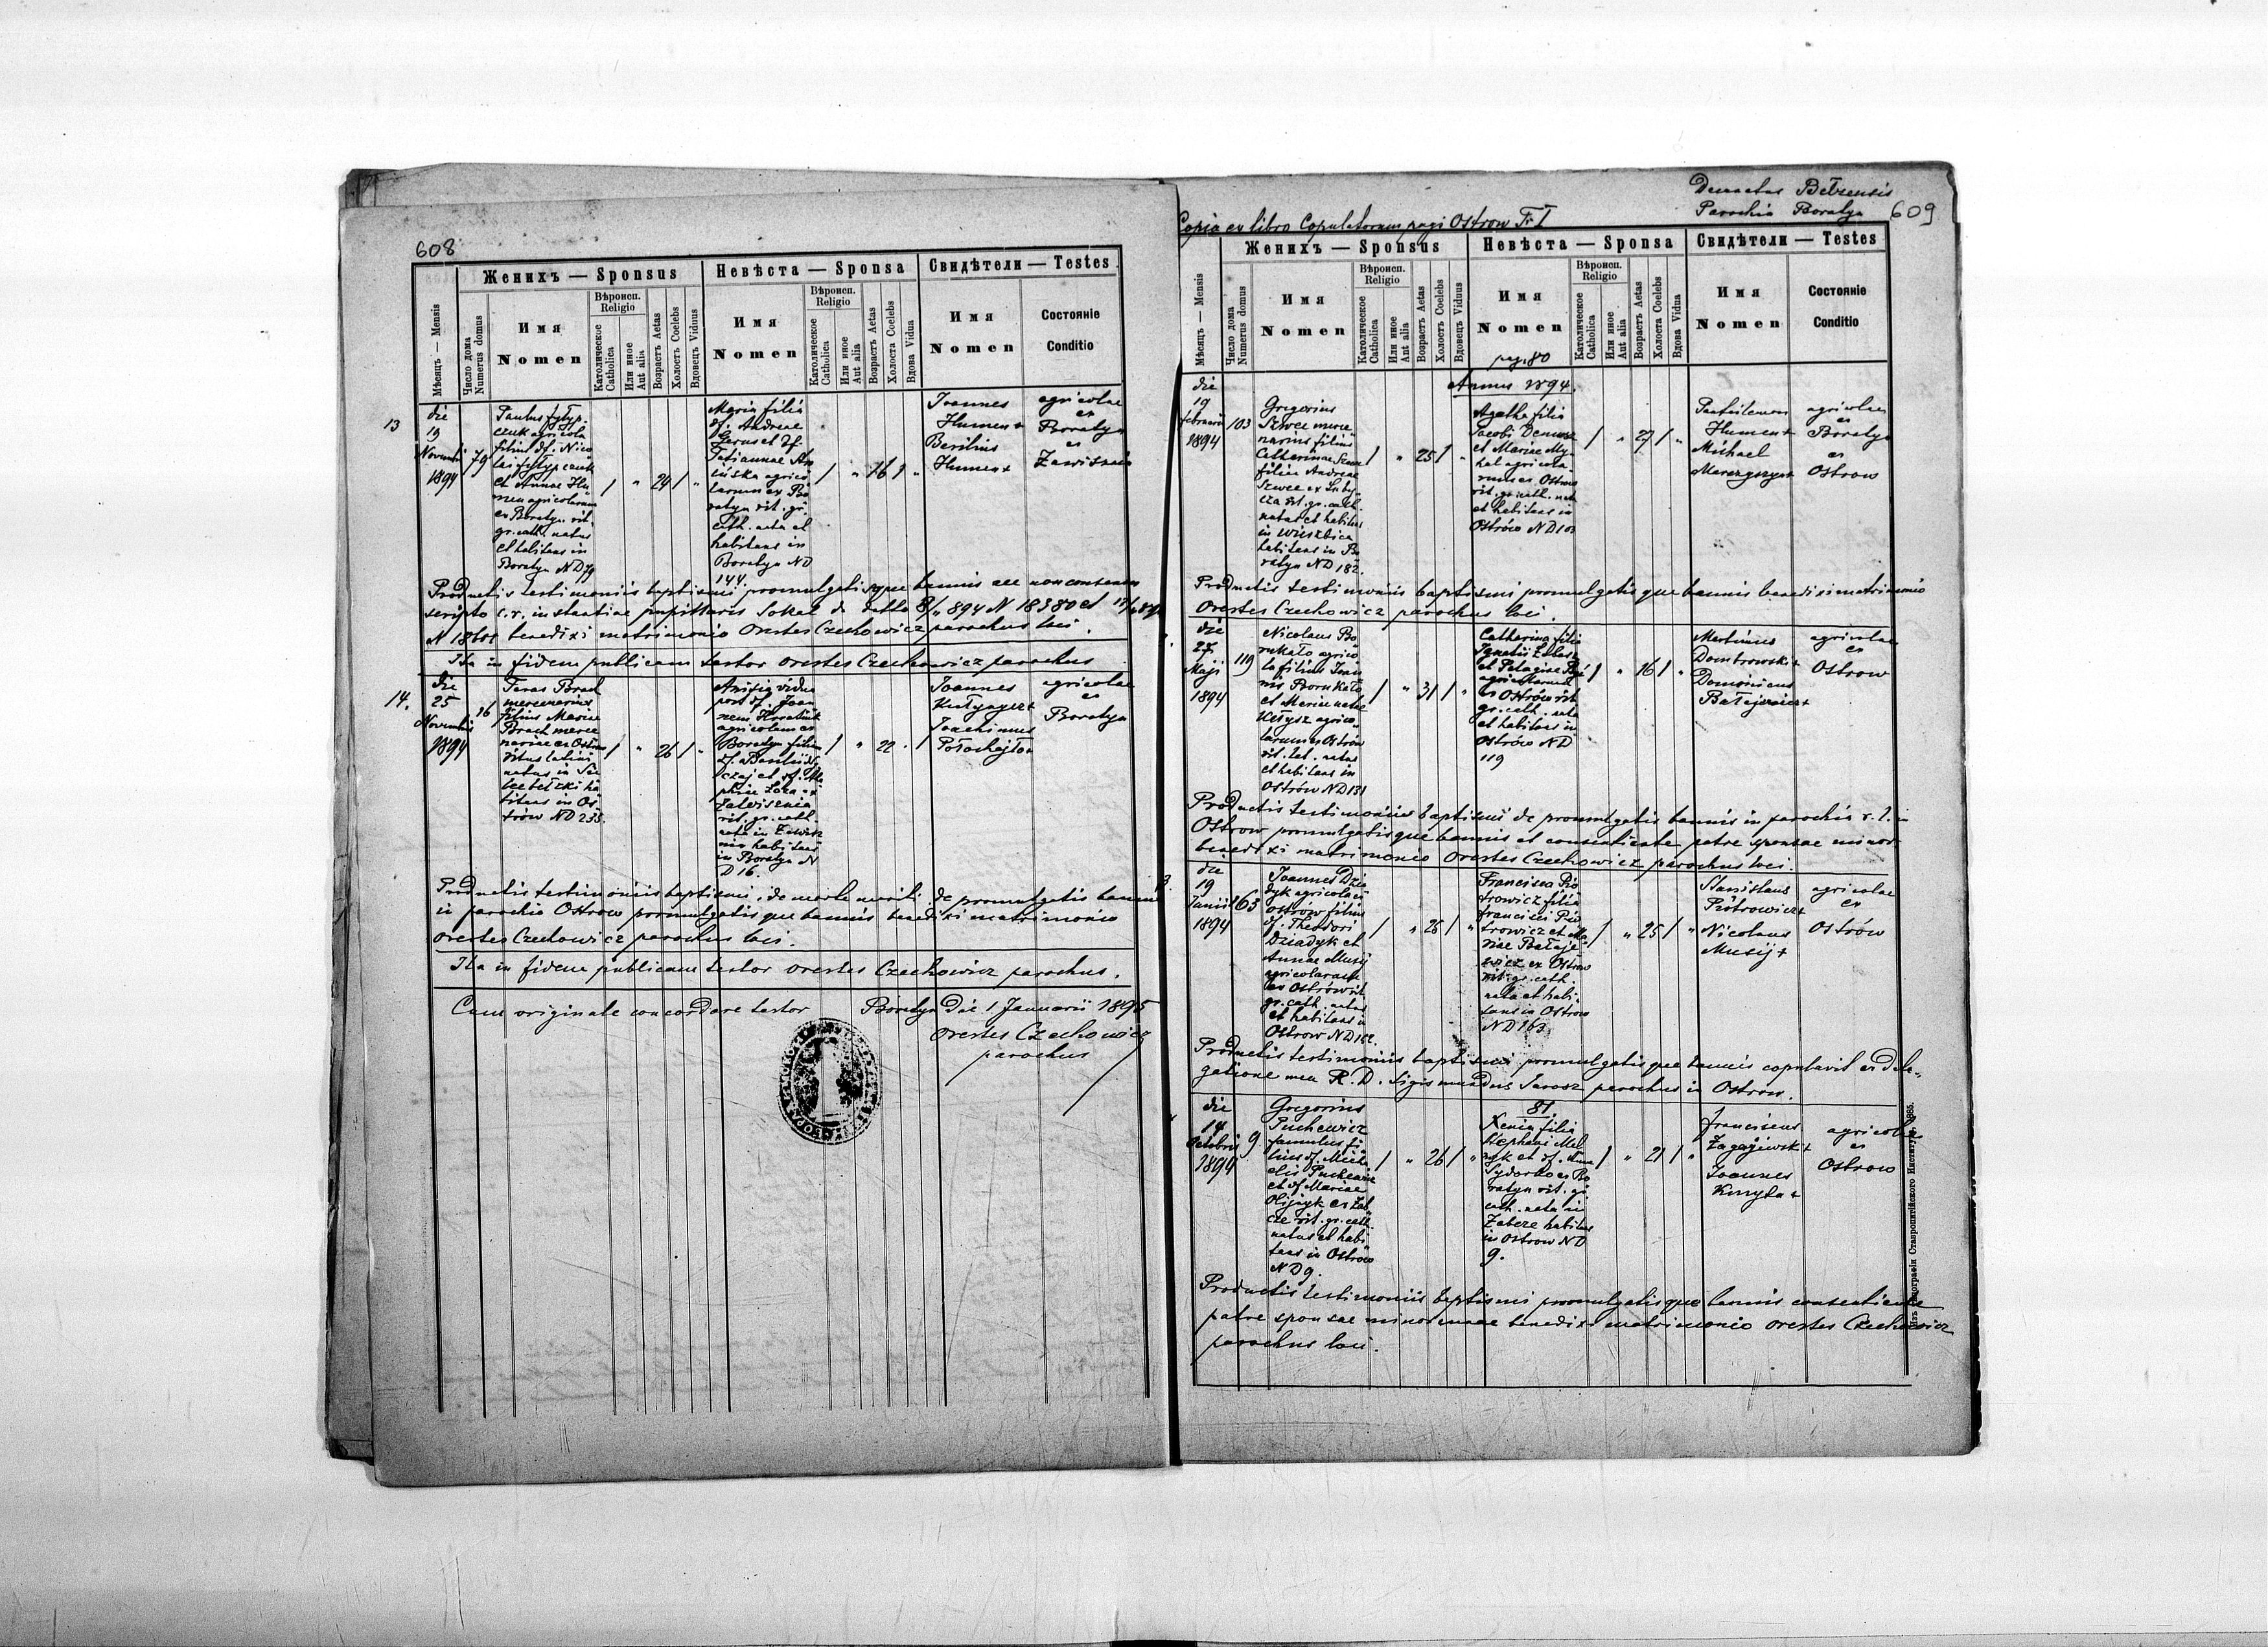 608
Женихъ — Sponsus
Невѣста — Sponsa
Свидѣтели — Testes
Мѣсяцъ — Mensis
Число дома
Numerus domus
Имя
Nomen
Вѣроисп.
Religio
Католическое
Catholica
Или иное
Aut alia
Возрастъ Aetas
Холостъ Coelebs
Вдовецъ Viduus
Имя
Nomen
Вѣроисп.
Religio
Католическое
Catholica
Или иное
Aut alia
Возрастъ Aetas
Холоста Coelebs
Вдова Vidua
Имя
Nomen
Состоянie
Conditio
13
die
19
Novembris
1894
79
Paulus
agricola
filius df. Nico
lai
et Annae Hu
men agricolarum
ex Boratyn rit.
gr. cath. natus
et habitans in
Boratyn ND 79
/ " 24 / "
Maria filia
df. Andreae
et df.
Tatiannae
agrico
larum ex Bo
ratyn rit. gr.
cath. nata et
habitans in
Boratyn ND
144.
/ " 16 / "
Joannes
Humen +
Basilius
Humen +
agricolae
ex
Boratyn
ex
Productis testimoniis baptismi promulgatisque bannis
scripto c. r. instantiae pupillaris Sokal
N benedixi matrimonio Orestes Czechowicz parochus loci.
Ita in fidem publicam testor Orestes Czechowicz parochus
14.
die
25
Novembris
1894
16
Taras Brach
mercenarius
filius Mariae
Brach merce
nariae ex Ostrow
ritus latini
natus in
ha
bitans in Os
trów ND 235.
/ " 26 / "
vidua
post df. Joan
nem
agricolam ex
Boratyn filia
nata in
habitans
in Boratyn N
D 16.
/ " 22 . /
Joannes
Joachimus
agricolae
ex
Boratyn
Productis testimoniis baptismi, de morte mariti, de promulgatis bannis
in parochia Ostrow promulgatisque bannis benedixi matrimonio
Orestes Czechowicz parochus loci.
Ita in fidem publicam testor Orestes Czechowicz parochus.
Cum originale concordare testor Boratyn Die 1 Januarii 1895
Orestes Czechowicz
parochus
Decanatus Bełzensis
Parochia Boratyn 609
Copia ex libro Copulatorum pagi Ostrow F: I
Женихъ — Sponsus
Невѣста — Sponsa
Свидѣтели — Testes
Мѣсяцъ — Mensis
Число дома
Numerus domus
Имя
Nomen
Вѣроисп.
Religio
Католическое
Catholica
Или иное
Aut alia
Возрастъ Aetas
Холостъ Coelebs
Вдовецъ Viduus
Имя
Nomen
pag. 80
Вѣроисп.
Religio
Католическое
Catholica
Или иное
Aut alia
Возрастъ Aetas
Холоста Coelebs
Вдова Vidua
Имя
Nomen
Состоянie
Conditio
Annus 1894.
die
19
februarii
1894
103
Gregorius
Szwec merce
narius filius
Catharinae Szwec
filiae Andreae
Szwec ex
rit. gr. cath.
natus et habitans
in
habitans in Bo
ratyn ND 182.
/ " 25 / "
Agatha filia
Jacobi
et Mariae My
hal agricola
rum ex Ostrow
rit. gr. cath. nata
et habitans in
Ostrów ND 103
/ " 27 / "
Pantelemon
Humen +
Michael
agricolae
ex
Boratyn
ex
Ostrow
Productis testimoniis baptismi promulgatisque bannis benedixi matrimonio
Orestes Czechowicz parochus loci.
die
27
Maji
1894
119
Nicolaus Bo
rukało agrico
la filius Joan
nis Borukało
et Mariae natae
agrico
larum ex Ostrów
rit. lat. natus
et habitans in
Ostrów ND 131
/ " 31 / "
Catharina filia
Ignatii
et Pelagiae
agricolarum
ex Ostrów rit.
gr. cath. nata
et habitans in
Ostrów ND
119
/ " 16 / "
Martinus
Dombrowski +
Dominicus
Bałajewicz +
agricolae
ex
Ostrow
Productis testimoniis baptismi de promulgatis bannis in parochia r. l. in
Ostrow promulgatisque bannis et consentiente patre sponsae minor.
benedixi matrimonio Orestes Czechowicz parochus loci.
die
19
Junii
1894
163
Joannes Dzia
dyk agricola ex
Ostrów filius
df. Theodori
Dziadyk et
Annae Musij
agricolarum
ex Ostrów rit
gr. cath. natus
et habitans in
Ostrow ND 162.
/ " 26 / "
Francisca Pio
trowicz filia
Francisci Pio
trowicz et Ma
riae Bałaje
wicz ex Ostrow
rit. gr. cath.
nata et habi
tans in Ostrow
ND 163
/ " 25 / "
Stanislaus
Piotrowicz +
Nicolaus
Musij +
agricolae
ex
Ostrów
Productis testimoniis baptismi promulgatisque bannis copulavit ex dele-
gatione mea R. D. Sigismundus Jarosz parochus in Ostrow.
die
14
Octobris
1894
9
Gregorius
Puchewicz
famulus fi
lius df. Micha
elis Puchewicz
et df Mariae
Olijnyk ex Zab
cze rit. gr. cath.
natus et habi
tans in Ostrow
ND 9.
/ " 26 / "
81
Xenia filia
Stephani Mel
nyk et df. Annae
Sydorko ex Bo
ratyn rit. gr.
cath. nata in
Zabcze habitans
in Ostrow ND
9.
/ " 21 / "
Franciscus
Joannes
agricolae
ex
Ostrow
Productis testimoniis baptismi promulgatisque bannis consentiente
patre sponsae minorennae benedixi matrimonio Orestes Czechowicz
parochus loci.
Изъ Типографiи Ставропигiйского Института, 1885.